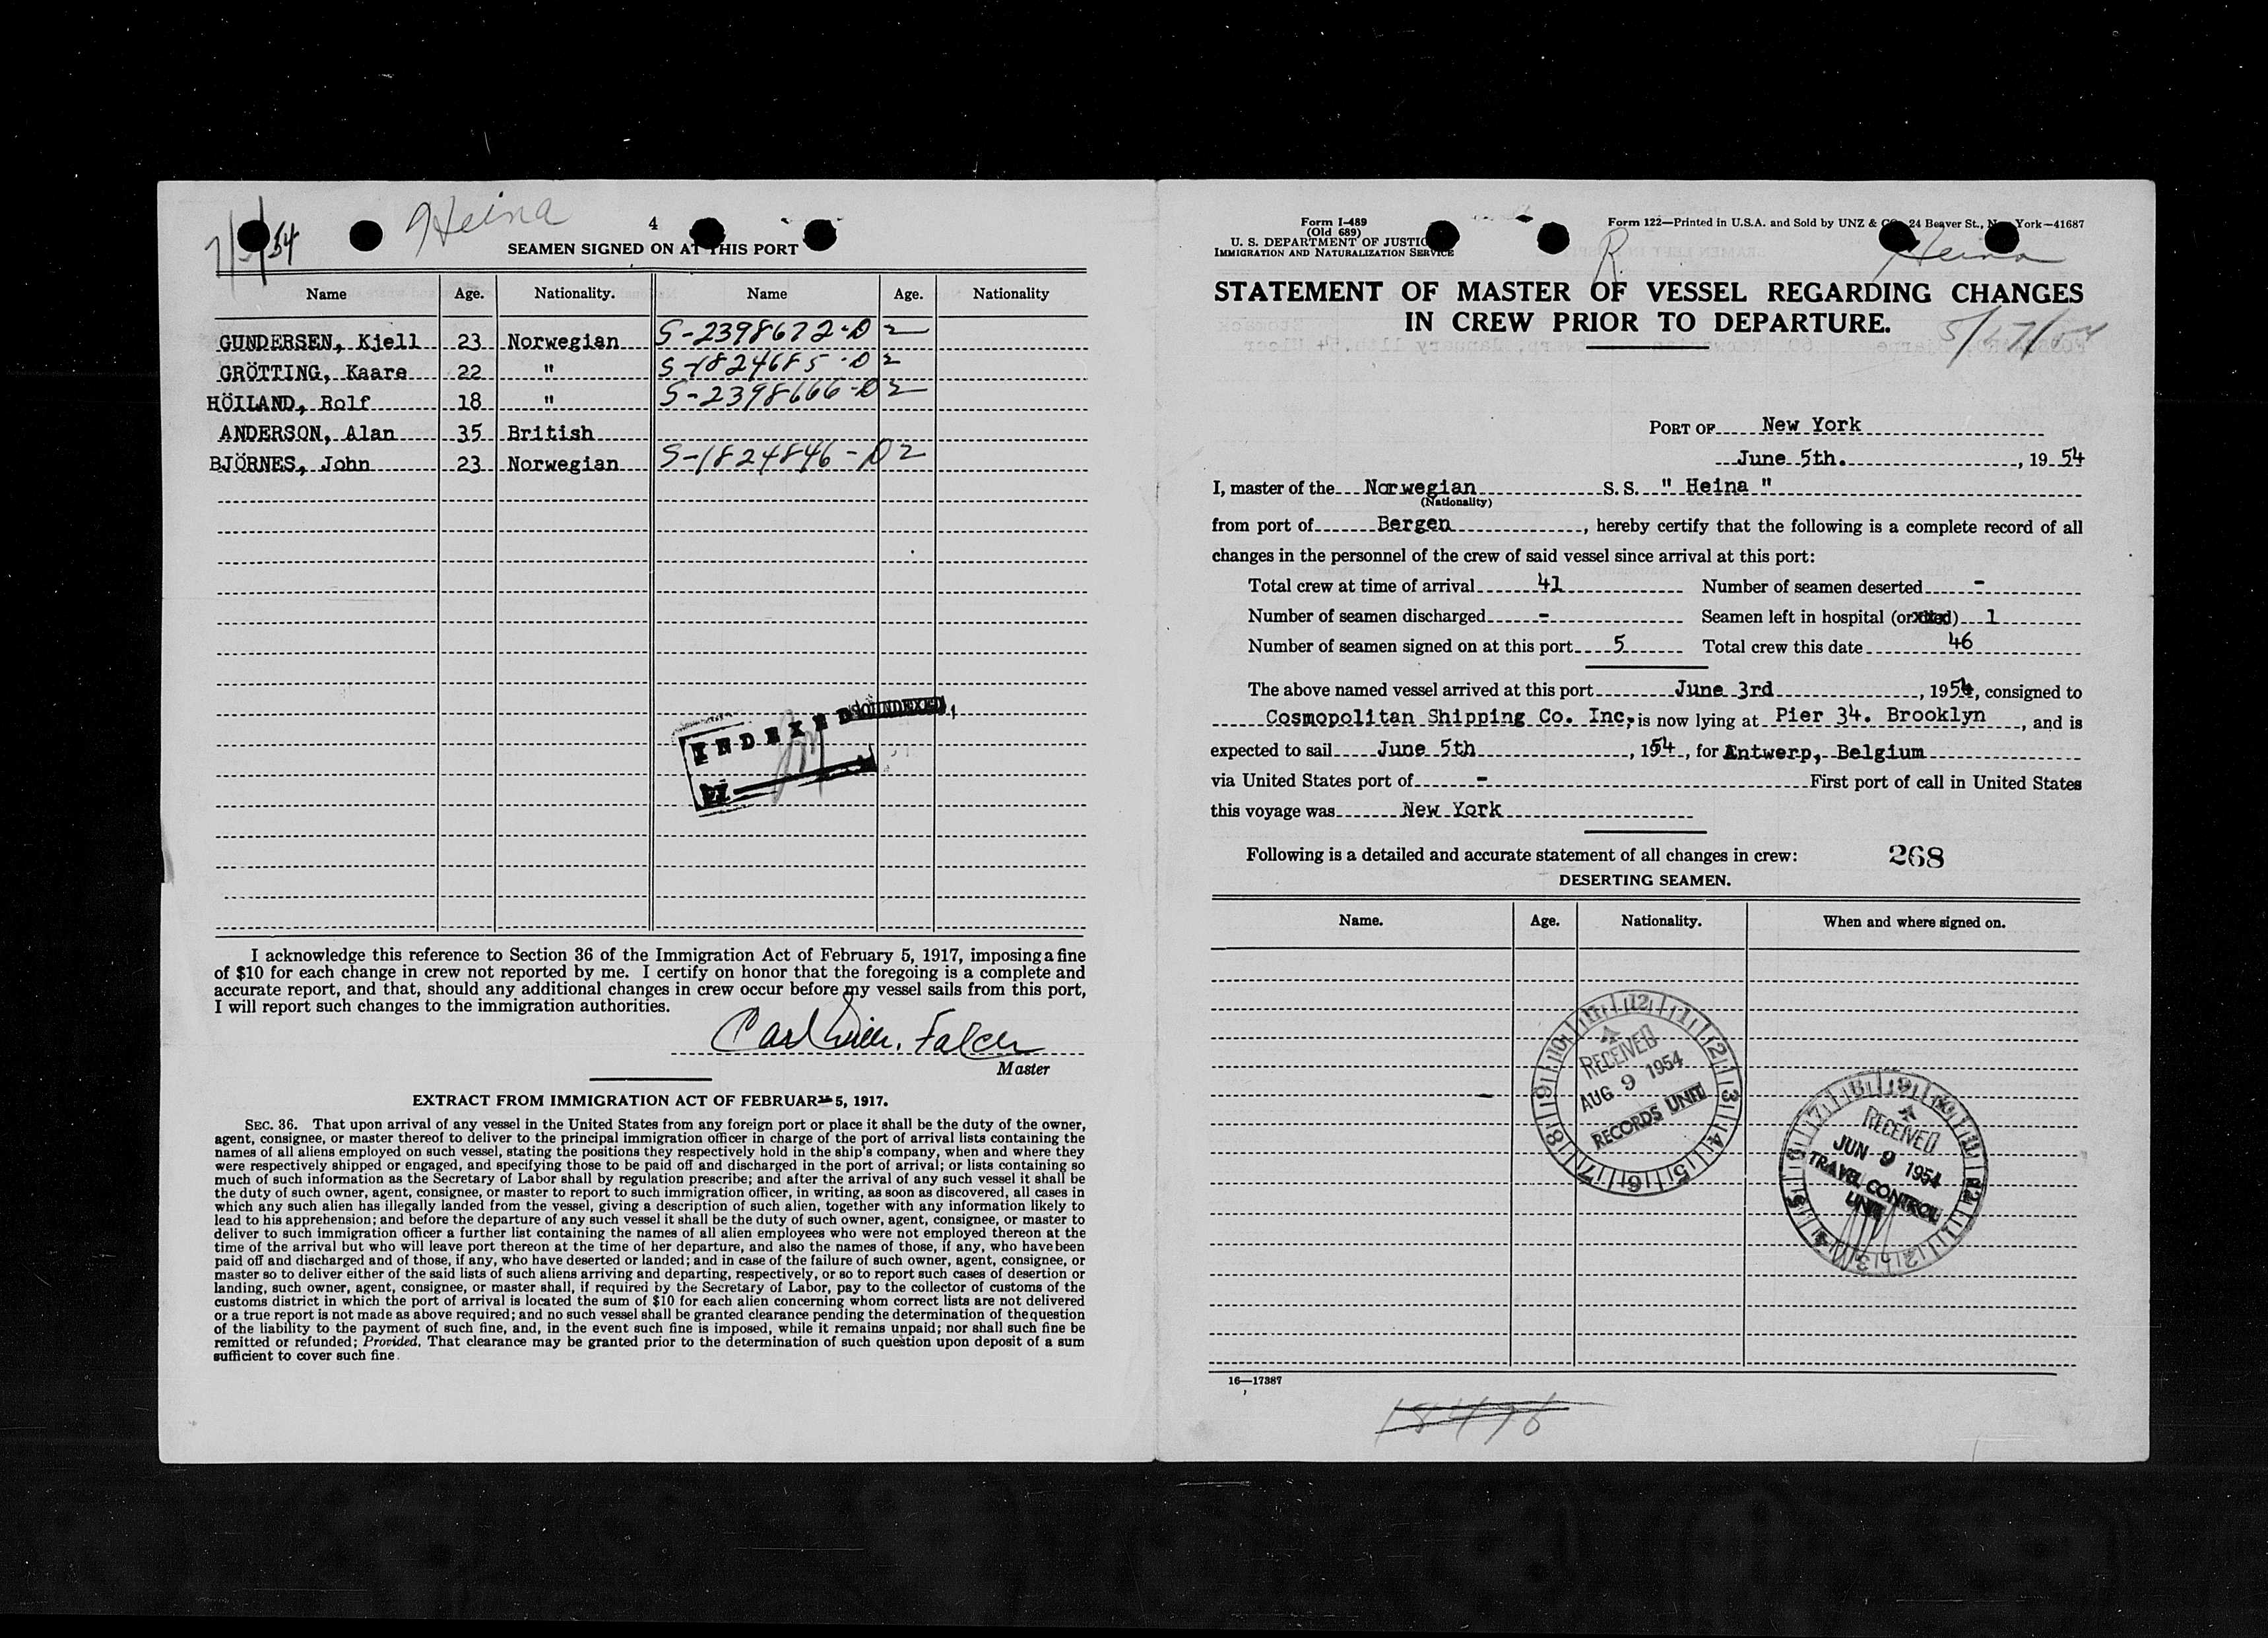 Heina
4
SEAMEN SIGNED ON AT THIS PORT
Name Age. Nationality. Name Age. Nationality
GUNDERSEN, Kjell 23 Norwegian S-2398672-D2
GRÖTTING, Kaare 22 " S-1824685-D2
HÖILAND, Rolf 18 " S-2398666-D2
ANDERSON, Alan 35 British
BJÖRNES, John 23 Norwegian S-1824846-D2
SOUNDEXED
INDEXED
I acknowledge this reference to Section 36 of the Immigration Act of February 5, 1917, imposing a fine
of $10 for each change in crew not reported by me. I certify on honor that the foregoing is a complete and
accurate report, and that, should any additional changes in crew occur before my vessel sails from this port,
I will report such changes to the immigration authorities.
Master
EXTRACT FROM IMMIGRATION ACT OF FEBRUARY 5, 1917.
SEC. 36. That upon arrival of any vessel in the United States from any foreign port or place it shall be the duty of the owner,
agent, consignee, or master thereof to deliver to the principal immigration officer in charge of the port of arrival lists containing the
names of all aliens employed on such vessel, stating the positions they respectively hold in the ship's company, when and where they
were respectively shipped or engaged, and specifying those to be paid off and discharged in the port of arrival; or lists containing so
much of such information as the Secretary of Labor shall by regulation prescribe; and after the arrival of any such vessel it shall be
the duty of such owner, agent, consignee, or master to report to such immigration officer, in writing, as soon as discovered, all cases in
which any such alien has illegally landed from the vessel, giving a description of such alien, together with any information likely to
lead to his apprehension; and before the departure of any such vessel it shall be the duty of such owner, agent, consignee, or master to
deliver to such immigration officer a further list containing the names of all alien employees who were not employed thereon at the
time of the arrival but who will leave port thereon at the time of her departure, and also the names of those, if any, who have been
paid off and discharged and of those, if any, who have deserted or landed; and in case of the failure of such owner, agent, consignee, or
master so to deliver either of the said lists of such aliens arriving and departing, respectively, or so to report such cases of desertion or
landing, such owner, agent, consignee, or master shall, if required by the Secretary of Labor, pay to the collector of customs of the
customs district in which the port of arrival is located the sum of $10 for each alien concerning whom correct lists are not delivered
or a true report is not made as above required; and no such vessel shall be granted clearance pending the determination of the question
of the liability to the payment of such fine, and, in the event such fine is imposed, while it remains unpaid; nor shall such fine be
remitted or refunded; Provided, That clearance may be granted prior to the determination of such question upon deposit of a sum
sufficient to cover such fine.
Form I-489
(Old 689)
U. S. DEPARTMENT OF JUSTICE
IMMIGRATION AND NATURALIZATION SERVICE
Form 122—Printed in U.S.A. and Sold by UNZ & CO., 24 Beaver St., New York—41687
R. Heina
STATEMENT OF MASTER OF VESSEL REGARDING CHANGES
IN CREW PRIOR TO DEPARTURE.
PORT OF New York
June 5th. , 19 54
I, master of the Norwegian S. S. " Heina "
(Nationality)
from port of Bergen , hereby certify that the following is a complete record of all
changes in the personnel of the crew of said vessel since arrival at this port:
Total crew at time of arrival 41 Number of seamen deserted -
Number of seamen discharged - Seamen left in hospital (or died) 1
Number of seamen signed on at this port 5 Total crew this date 46
The above named vessel arrived at this port June 3rd , 1954, consigned to
Cosmopolitan Shipping Co. Inc, is now lying at Pier 34. Brooklyn , and is
expected to sail June 5th , 1954 , for Antwerp, Belgium
via United States port of - First port of call in United States
this voyage was New York
Following is a detailed and accurate statement of all changes in crew: 268
DESERTING SEAMEN.
Name. Age. Nationality. When and where signed on.
RECEIVED
AUG 9 1954
RECORDS UNIT
RECEIVED
JUN 9 1954
TRAVEL CONTROL
UNIT
16—17387
18496